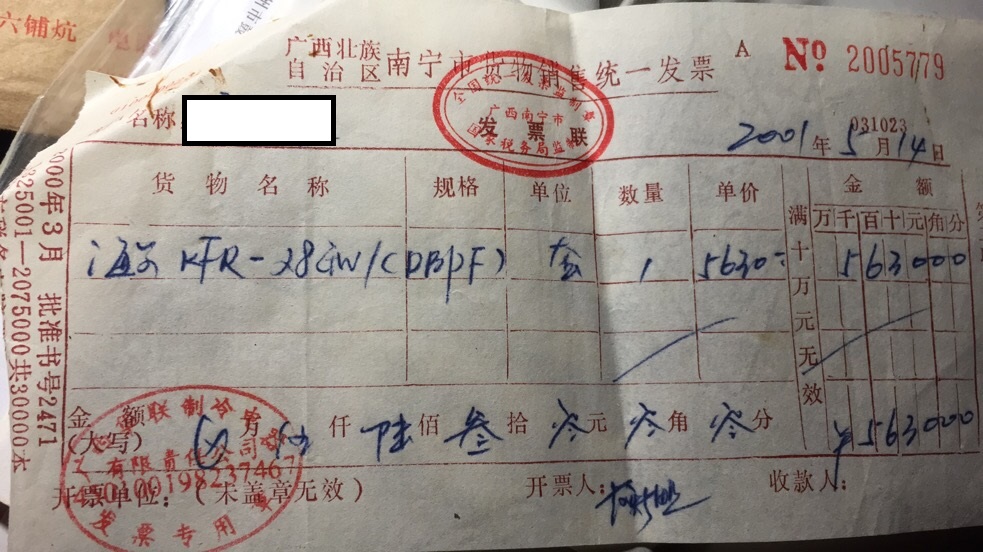 六铺炕
广西壮族
自治区
南宁市货物销售统一发票
A
№ 2005779
全国统一发票监制章
广西南宁市
国家税务局监制
发票联
名称
031023
2001年5月14日
货物名称 规格 单位 数量 单价 金额
满十万元无效
万千百十元角分
海尔 KFR-28GW/(DBPF) 套 1 5630- 563000
金额
(大写) 万 伍仟陆佰叁拾零元零角零分 ¥563000
联制冷
有限责任公司
450100198237467
发票专用章
开票单位:(未盖章无效) 开票人: 收款人:
2000年3月 批准书号2471
225001—2075000共30000本